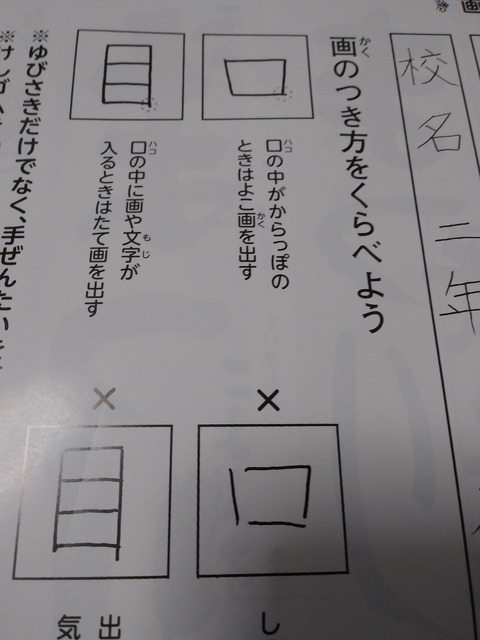 校名 二年
画のつき方をくらべよう
かく
口
口の中がからっぽの
ハコ
ときはよこ画を出す
かく
×
口
し
目
口の中に画や文字が
ハコ
もじ
入るときはたて画を出す
×
目
出
気
※ゆびさきだけでなく、手ぜんたいを